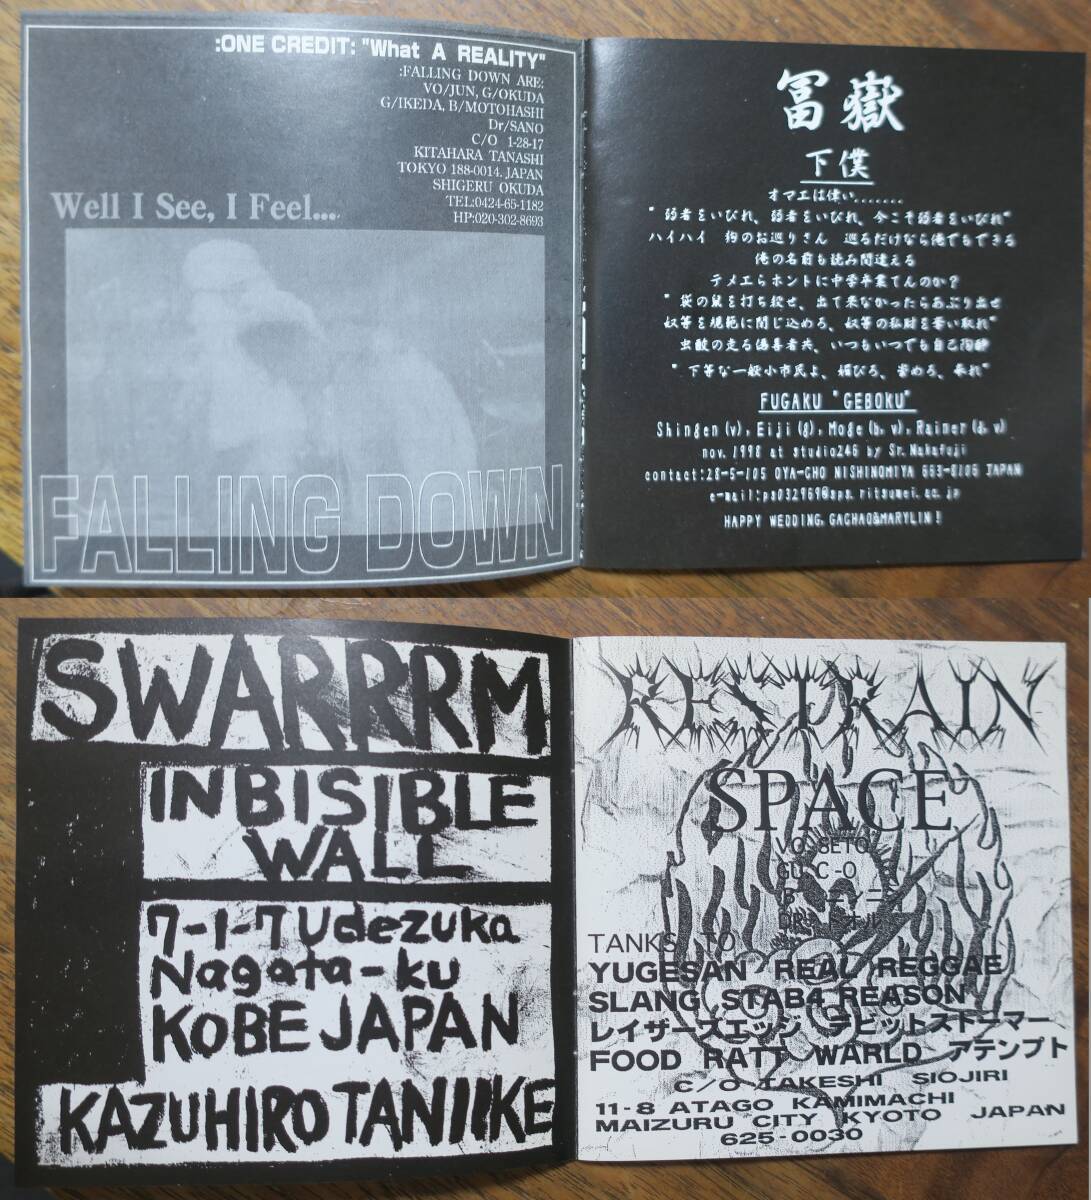 :ONE CREDIT: "What A REALITY"
:FALLING DOWN ARE:
VO/JUN, G/OKUDA
G/IKEDA, B/MOTOHASHI
Dr/SANO
C/O 1-28-17
KITAHARA TANASHI
TOKYO 188-0014. JAPAN
SHIGERU OKUDA
TEL:0424-65-1182
HP:020-302-8693
Well I See, I Feel...
FALLING DOWN
冨嶽
下僕
オマエは偉い.......
"弱者をいびれ、弱者をいびれ、今こそ弱者をいびれ"
ハイハイ 狗のお巡りさん 巡るだけなら俺でもできる
俺の名前も読み間違える
テメエらホントに中学卒業てんのか?
"袋の鼠を打ち殺せ、出て来なかったらあぶり出せ
奴等を規範に閉じ込めろ、奴等の私財を奪い取れ"
虫酸の走る偽善者共、いつもいつでも自己陶酔
"下等な一般小市民よ、媚びろ、崇めろ、平れ"
FUGAKU "GEBOKU"
Shingen(v), Eiji(g), Moge(b,v), Rainer(d,v)
nov.1998 at studio246 by Sr.Nakafuji
contact:28-5-105 OYA-CHO NISHINOMIYA 663-8106 JAPAN
e-mail:ps032969@sps.ritsumei.ac.jp
HAPPY WEDDING, GACHAO&MARYLIN!
SWARRRM
INBISIBLE
WALL
7-1-7 Udezuka
Nagata-ku
KOBE JAPAN
KAZUHIRO TANIIKE
RESTRAIN
SPACE
VO SETO
GU C-O
TANKS TO
YUGESAN REAL REGGAE
SLANG STAB4 REASON
レイザーズエッジ デビットストーマー
FOOD RATT WARLD アテンプト
C/O TAKESHI SIOJIRI
11-8 ATAGO KAMIMACHI
MAIZURU CITY KYOTO JAPAN
625-0030